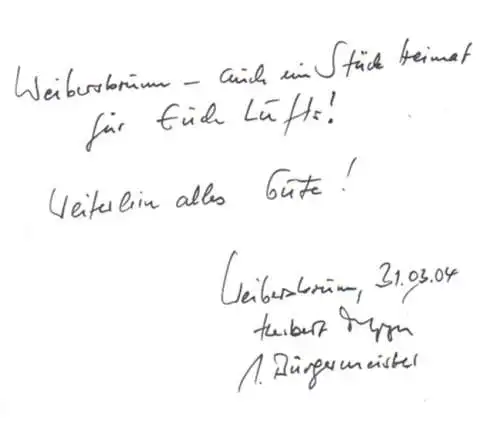 Weibersbrunn – auch ein Stück Heimat
für Euch Lufts!
Weiterhin alles Gute!
Weibersbrunn, 31.03.04
Herbert
1. Bürgermeister